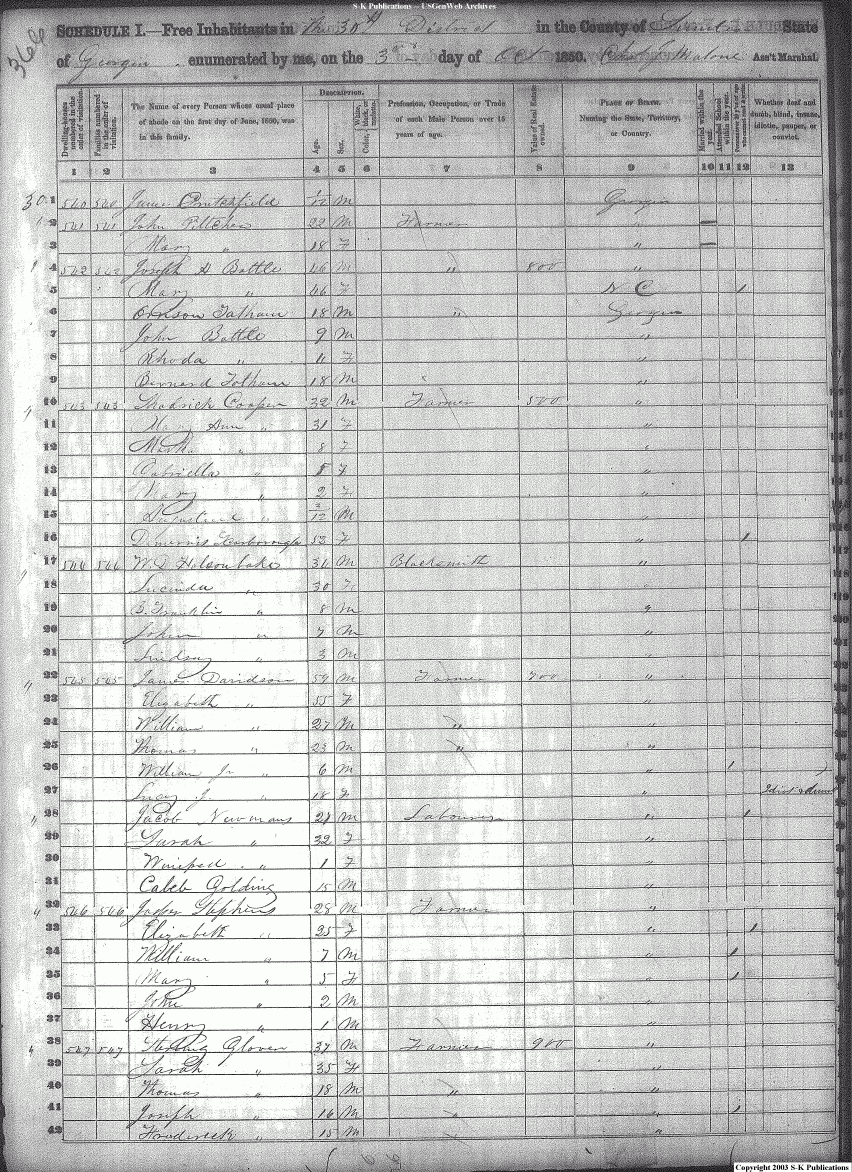 S-K Publications -- USGenWeb Archives
SCHEDULE I.—Free Inhabitants in the 30th District in the County of State
of Georgia enumerated by me, on the 3rd day of Oct 1850. Malone Ass't Marshal.
366
Dwelling-houses numbered in the order of visitation.
Families numbered in the order of visitation.
The Name of every Person whose usual place of abode on the first day of June, 1850, was in this family.
Description.
Age.
Sex.
White, black, or mulatto.
Color,
Profession, Occupation, or Trade of each Male Person over 15 years of age.
Value of Real Estate owned.
Place of Birth. Naming the State, Territory, or Country.
Married within the year.
Attended School within the year.
Whether deaf and dumb, blind, insane, idiotic, pauper, or convict.
1 2 3 4 5 6 7 8 9 10 11 12 13
30 1 540 540 James 1/12 M Georgia
2 541 541 John Pitcher 22 M Farmer "
3 Mary " 18 F "
4 542 542 Joseph D Battle 46 M " 800 "
5 Mary " 46 F N C 1
6 Tatham 18 M " Georgia
7 John Battle 9 M "
8 Rhoda " 11 F "
9 Bernard Tatham 18 M "
10 543 543 Shadrick Cooper 32 M Farmer 500 "
11 Mary Ann " 31 F "
12 Martha " 8 F "
13 " 5 F "
14 Mary " 2 F "
15 " 3/12 M "
16 Scarborough 53 F " 1
17 544 544 W. D. Holsonbake 31 M Blacksmith "
18 Lucinda " 30 F "
19 B. Franklin " 8 M "
20 John " 7 M "
21 Lindsay " 3 M "
22 545 545 James Davidson 59 M Farmer 700 "
23 Elizabeth " 55 F "
24 William " 27 M " "
25 Thomas " 23 M " "
26 William Jr " 6 M " 1
27 Lucy J. " 18 F "
28 Jacob Newmans 21 M Labourer " 1
29 Sarah " 32 F "
30 Winifred " 1 F "
31 Caleb Golding 15 M "
32 546 546 Jasper Stephens 28 M Farmer "
33 Elizabeth " 25 F " 1
34 William " 7 M " 1
35 Mary " 5 F " 1
36 John " 2 M "
37 Henry " 1 M "
38 547 547 Sterling Glover 37 M Farmer 900 "
39 Sarah " 35 F "
40 Thomas " 18 M " "
41 Joseph " 16 M " " 1
42 Frederick " 15 M "
Copyright 2003 S-K Publications